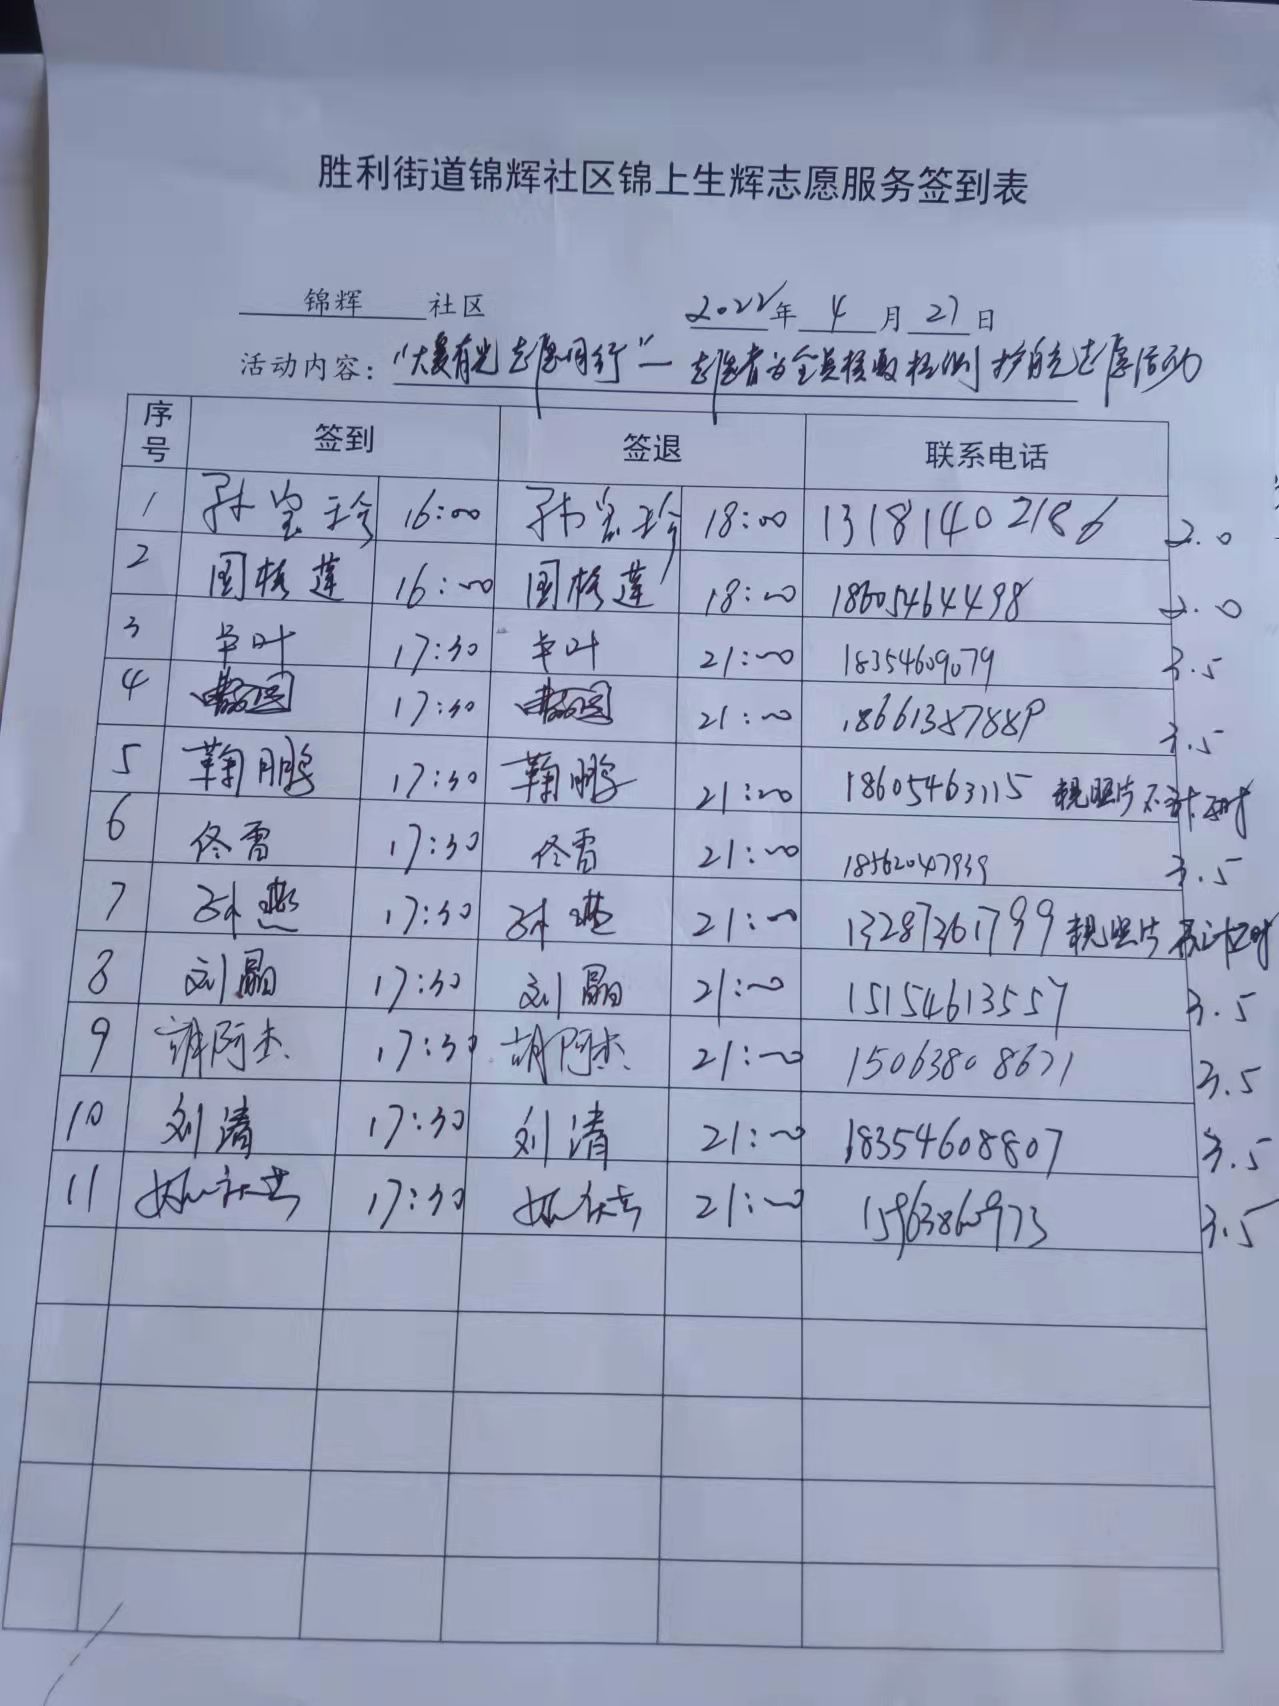 胜利街道锦辉社区锦上生辉志愿服务签到表
锦辉 社区 2022年 4 月 27 日
活动内容：“大爱有光 志愿同行”— 志愿者为全员核酸检测护航志愿活动
序号 签到 签退 联系电话
1 孙宝珍 16:00 孙宝珍 18:00 13181402186 2.0
2 周格莲 16:00 周格莲 18:00 18605464498 2.0
3 卓叶 17:30 卓叶 21:00 18354609079 3.5
4 17:30 21:00 18661387889 3.5
5 鞠鹏 17:30 鞠鹏 21:00 18605463115 无照片 不计工时
6 佟雷 17:30 佟雷 21:00 18562047939 3.5
7 孙燕 17:30 孙燕 21:00 13287361799 无照片 不计工时
8 刘晶 17:30 刘晶 21:00 15154613557 3.5
9 胡阿杰 17:30 胡阿杰 21:00 15063808671 3.5
10 刘清 17:30 刘清 21:00 18354608807 3.5
11 17:30 21:00 15963860973 3.5